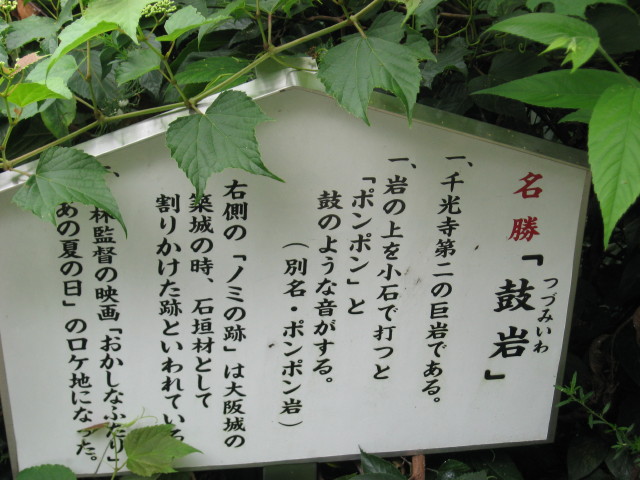 名勝「鼓岩」
つづみいわ
一、千光寺第二の巨岩である。
一、岩の上を小石で打つと
「ポンポン」と
鼓のような音がする。
(別名・ポンポン岩)
右側の「ノミの跡」は大阪城の
築城の時、石垣材として
割りかけた跡といわれている
林監督の映画「おかしなふたり」
あの夏の日」のロケ地になった。